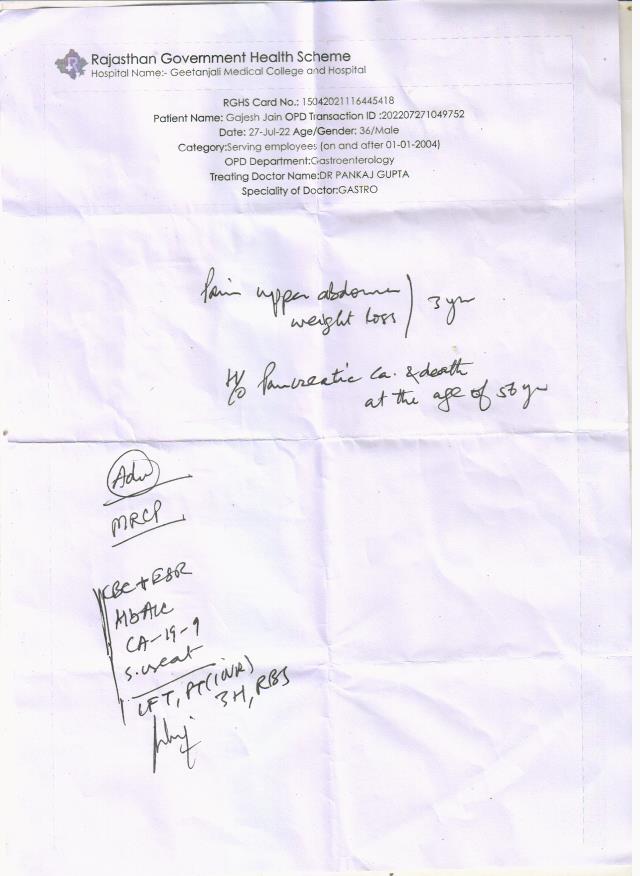 Rajasthan Government Health Scheme
Hospital Name:- Geetanjali Medical College and Hospital
RGHS Card No.: 15042021116445418
Patient Name: Gajesh Jain OPD Transaction ID :202207271049752
Date: 27-Jul-22 Age/Gender: 36/Male
Category:Serving employees (on and after 01-01-2004)
OPD Department:Gastroenterology
Treating Doctor Name:DR PANKAJ GUPTA
Speciality of Doctor:GASTRO
Pain upper abdomen
weight loss
3 yr
H/o Pancreatic Ca. & death
at the age of 56 yr
Adv
MRCP
CBC + ESR
HbA1c
CA-19-9
S. creat
LFT, PT(INR)
3H, RBS